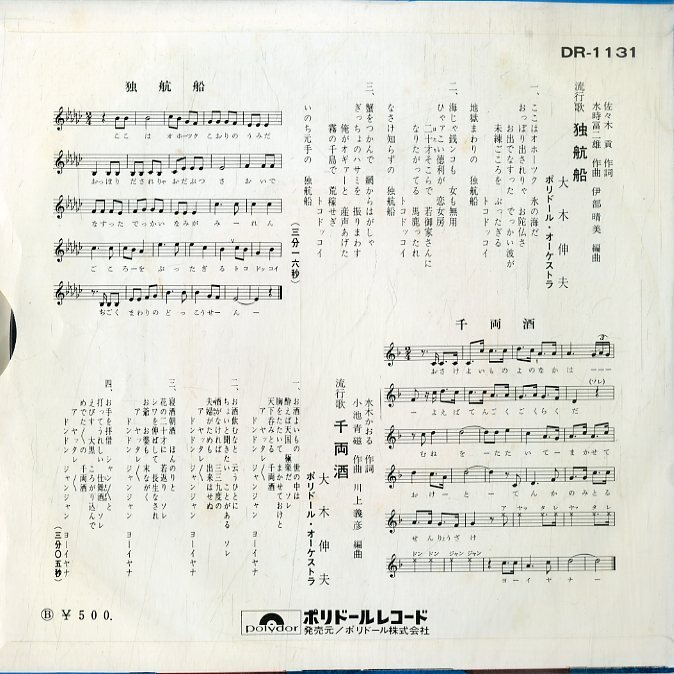 DR-1131
佐々木 貢 作詞
水時富二雄 作曲 伊部晴美 編曲
流行歌 独航船
大木伸夫
ポリドール・オーケストラ
一、ここはオホーツク 氷の海だ
おっぽり出されりゃ お陀仏さ
お出でなすった でっかい波が
未練ごころを ぶったぎる
トコドッコイ
地獄まわりの 独航船
二、海じゃ銭ンコも 女も無用
ひゃァこい徳利が 恋女房
二十才そこらで 若御家さんに
なりたがってる 馬鹿ったれ
トコドッコイ
なさけ知らずの 独航船
三、蟹をつかんで 網からはがしゃ
ぎっちょのハサミを 振りまわす
俺がオギァーと 産声あげた
霧の千島で 荒稼せぎ
トコドッコイ
いのち元手の 独航船
(三分一六秒)
独航船
ここ は オホーツク こおりのうみだ
おっぽり だされりゃおだぶつ さ おいで
なすった でっかい なみが み ー れん
ごころーを ぶったぎる トコドッコイ
ぢごく まわりの どっこうせーんー
千両酒
おさけよいもの よのなかは
(ソレ)
ーよえばてんごくごくらくだ
むねを ーたたいてーまかせて
おけーとーてんかのみとる
ア ヤッタレ ヤッタレ
せんりょうざけ
ドン ドン ジャン ジャン
ヨーイヤナー
水木かおる 作詞
小池青磁 作曲 川上義彦 編曲
流行歌 千両酒
大木伸夫
ポリドール・オーケストラ
一、お酒よいもの 世の中は
酔えば天国 極楽だ ソレ
胸をたたいて まかせておけと
天下呑みとる 千両酒
ア ヤッタレ ヤッタレ
ドンドン ジャンジャン ヨーイヤナ
二、お酒飲むなと 云うひとに
ちょいと聞きたい ことがある ソレ
酒がなければ 三三九度の
夫婦がためも 出来はせぬ
ア ヤッタレ ヤッタレ
ドンドン ジャンジャン ヨーイヤナ
三、寝酒朝酒 ほんのりと
花の二十才に 若返り ソレ
シワを伸ばして 長生なされ
お爺 お婆も 末ながく
ア ヤッタレ ヤッタレ
ドンドン ジャンジャン ヨーイヤナ
四、お手を拝借 シャンシャンと
打ってうれしい 仕舞酒 ソレ
えびす 大黒 ころがり込んで
めでた〱の 千両酒
ア ヤッタレ ヤッタレ
ドンドン ジャンジャン ヨーイヤナ
(三分〇五秒)
Ⓑ ¥500.
polydor
ポリドールレコード
発売元/ポリドール株式会社